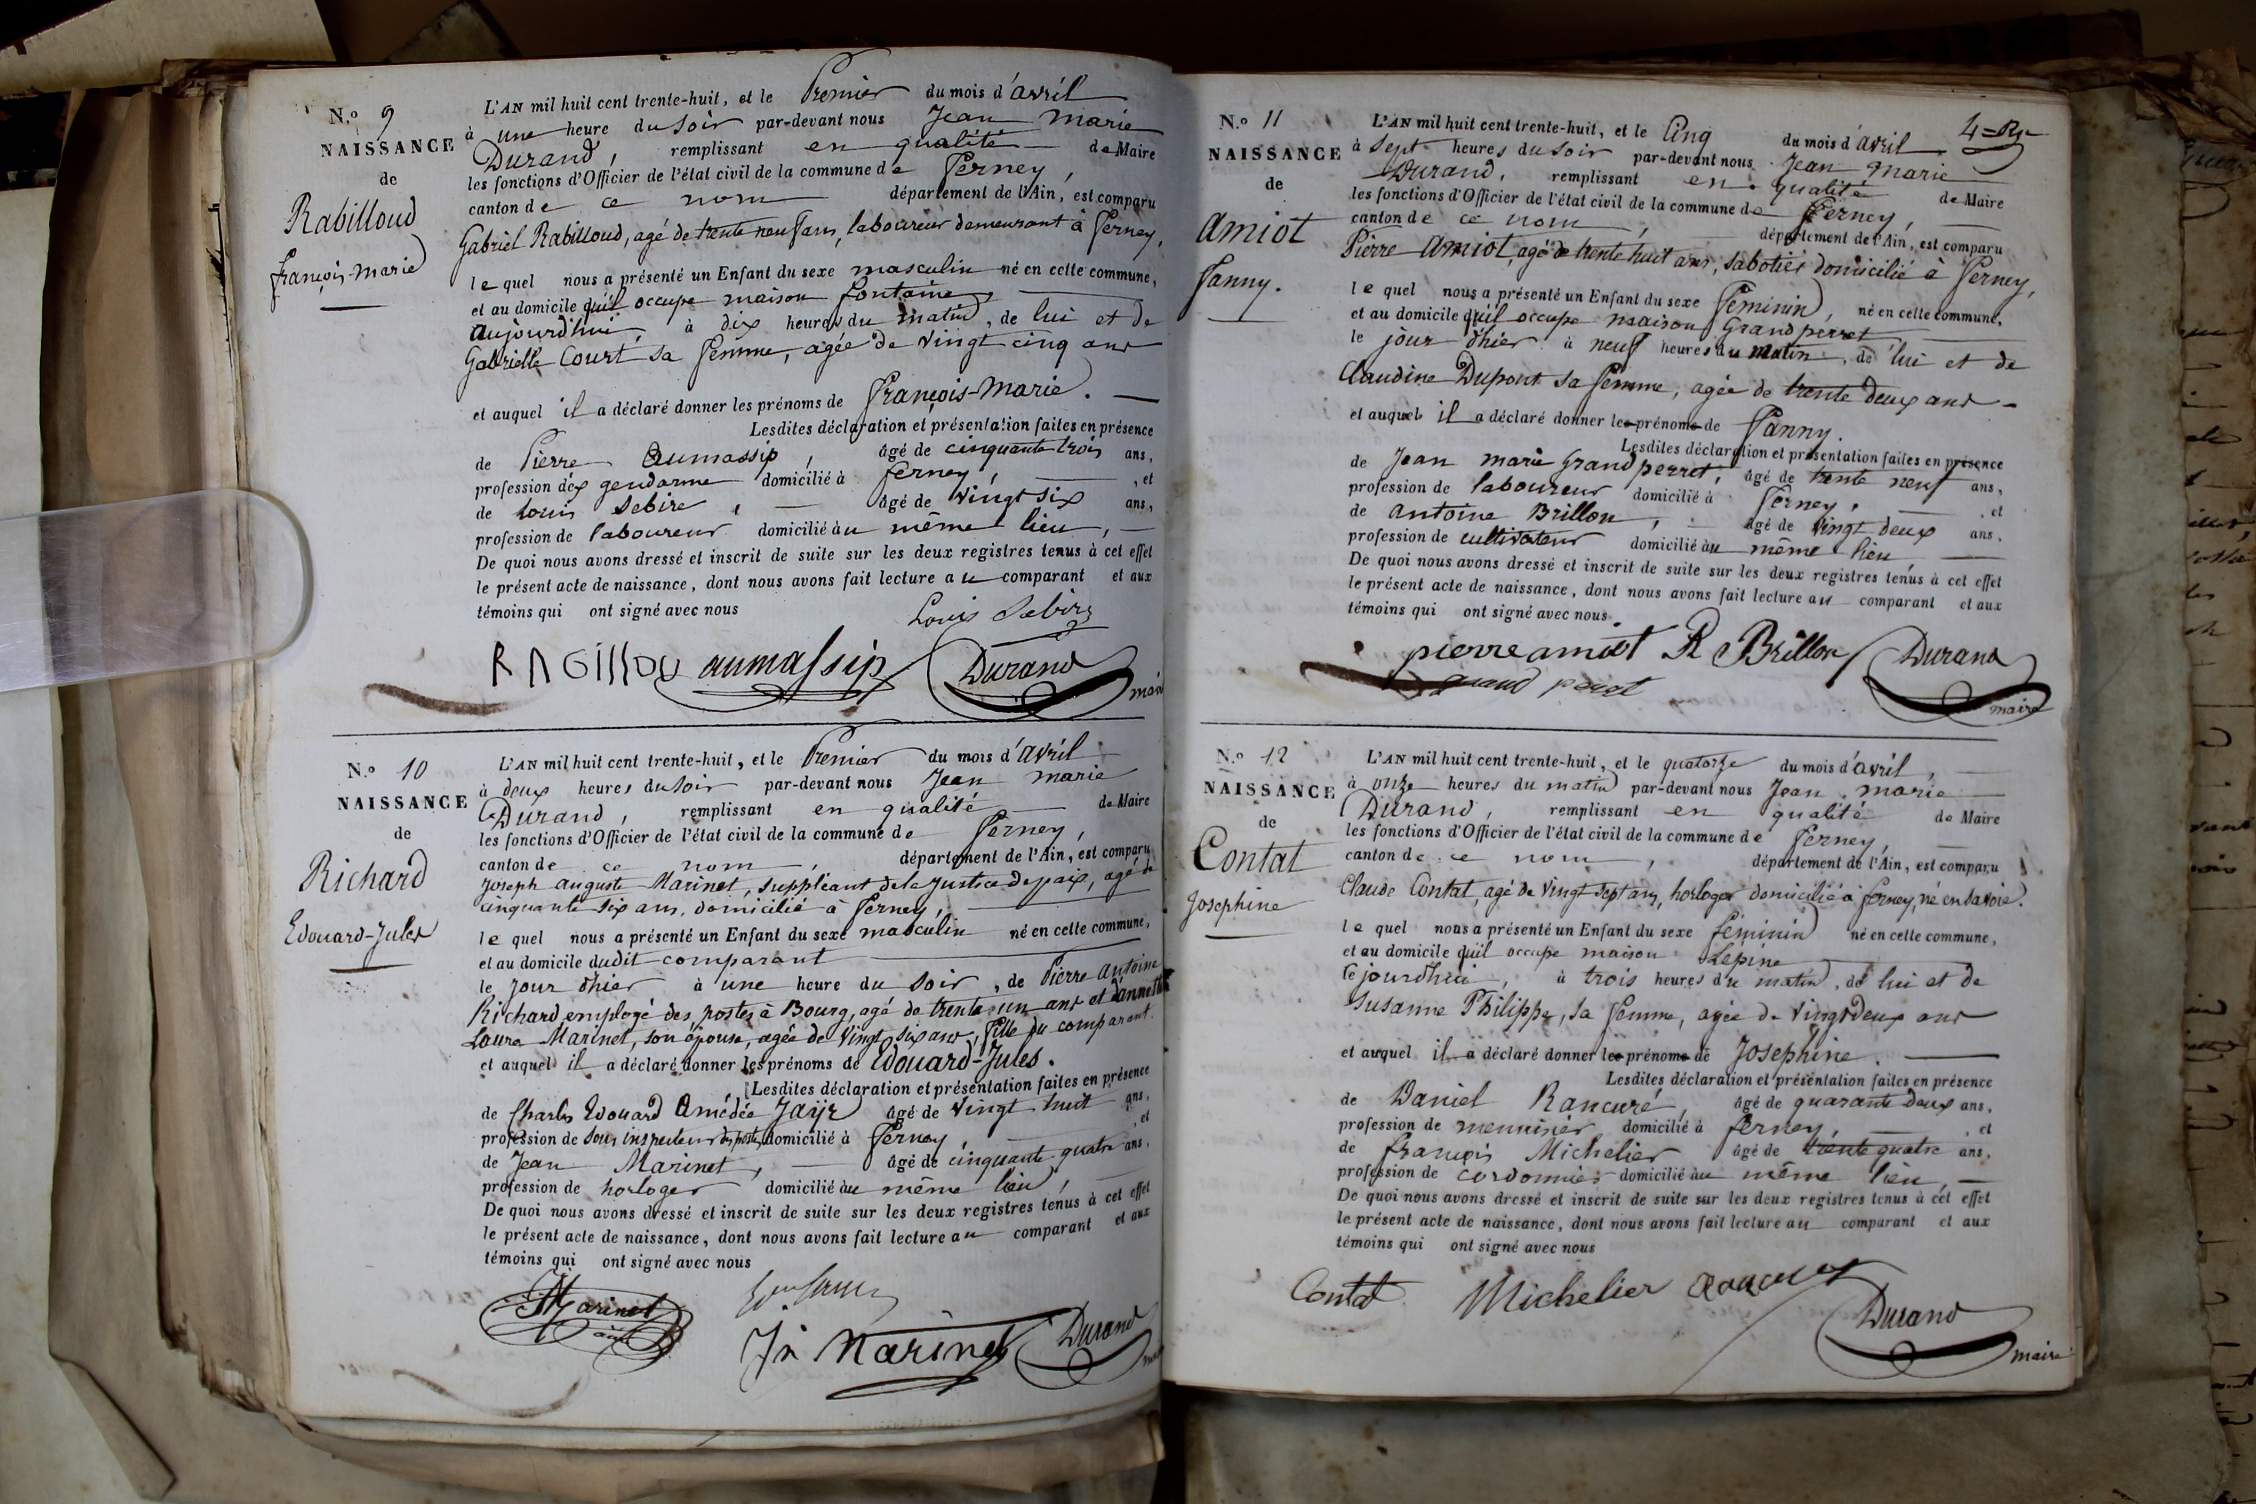 N.º 9
NAISSANCE
de
Rabilloud
françois-marie
L'AN mil huit cent trente-huit, et le Premier du mois d'avril
à une heure du soir par-devant nous Jean marie
Durand, remplissant en qualité de Maire
les fonctions d'Officier de l'état civil de la commune de ferney,
canton de ce nom département de l'Ain, est comparu
Gabriel Rabilloud, agé de trente neuf ans, laboureur demeurant à ferney,
lequel nous a présenté un Enfant du sexe masculin né en cette commune,
et au domicile qu'il occupe maison fontaine,
aujourd'hui, à dix heures du matin, de lui et de
Gabrielle Court sa femme, agée de vingt cinq ans
et auquel il a déclaré donner les prénoms de françois-marie.
Lesdites déclaration et présentation faites en présence
de Pierre Aumassip, âgé de cinquante trois ans,
profession d'ex gendarme domicilié à ferney, , et
de Louis Sebire, âgé de vingt six ans,
profession de laboureur domicilié au même lieu,
De quoi nous avons dressé et inscrit de suite sur les deux registres tenus à cet effet
le présent acte de naissance, dont nous avons fait lecture au comparant et aux
témoins qui ont signé avec nous
Louis Sebire
aumassip Durand
N.º 10
NAISSANCE
de
Richard
Edouard-Jules
L'AN mil huit cent trente-huit, et le Premier du mois d'avril
à deux heures du soir par-devant nous Jean marie
Durand, remplissant en qualité de Maire
les fonctions d'Officier de l'état civil de la commune de ferney,
canton de ce nom, département de l'Ain, est comparu
Joseph auguste Marinet, suppléant de la Justice de paix, agé de
cinquante six ans, domicilié à ferney,
lequel nous a présenté un Enfant du sexe masculin né en cette commune,
et au domicile dudit comparant
le jour d'hier à une heure du soir, de Pierre antoine
Richard employé des postes à Bourg, agé de trente un ans et d'annette
Laure Marinet, son épouse, agée de vingt six ans, fille du comparant.
et auquel il a déclaré donner les prénoms de Edouard-Jules.
Lesdites déclaration et présentation faites en présence
de Charles Edouard Amédée Jayr âgé de vingt huit ans,
profession de sous inspecteur des postes, domicilié à ferney, , et
de Jean Marinet, âgé de cinquante quatre ans,
profession de horloger domicilié au même lieu,
De quoi nous avons dressé et inscrit de suite sur les deux registres tenus à cet effet
le présent acte de naissance, dont nous avons fait lecture au comparant et aux
témoins qui ont signé avec nous
Marinet
Jn Marinet Durand
N.º 11
NAISSANCE
de
Amiot
fanny.
L'AN mil huit cent trente-huit, et le Cinq du mois d'avril
à sept heures du soir par-devant nous Jean marie
Durand, remplissant en qualité de Maire
les fonctions d'Officier de l'état civil de la commune de ferney,
canton de ce nom, département de l'Ain, est comparu
Pierre Amiot, agé de trente huit ans, sabotier domicilié à ferney,
lequel nous a présenté un Enfant du sexe féminin, né en cette commune,
et au domicile qu'il occupe maison Grandperret
le jour d'hier à neuf heures du matin, de lui et de
Claudine Dupont sa femme, agée de trente deux ans
et auquel il a déclaré donner les prénoms de fanny.
Lesdites déclaration et présentation faites en présence
de Jean marie Grandperret, âgé de trente neuf ans,
profession de laboureur domicilié à ferney, , et
de antoine Brillon, âgé de vingt deux ans,
profession de cultivateur domicilié au même lieu
De quoi nous avons dressé et inscrit de suite sur les deux registres tenus à cet effet
le présent acte de naissance, dont nous avons fait lecture au comparant et aux
témoins qui ont signé avec nous.
pierre amiot Brillon Durand
grand peret maire
N.º 12
NAISSANCE
de
Contat
Josephine
L'AN mil huit cent trente-huit, et le quatorze du mois d'avril,
à onze heures du matin par-devant nous Jean marie
Durand, remplissant en qualité de Maire
les fonctions d'Officier de l'état civil de la commune de ferney,
canton de ce nom, département de l'Ain, est comparu
Claude Contat, agé de vingt sept ans, horloger domicilié à ferney, né en Savoie.
lequel nous a présenté un Enfant du sexe féminin né en cette commune,
et au domicile qu'il occupe maison Lépine
cejourd'hui, à trois heures du matin, de lui et de
Susanne Philippe, sa femme, agée de vingt deux ans
et auquel il a déclaré donner les prénoms de Josephine.
Lesdites déclaration et présentation faites en présence
de Daniel Rancuré, âgé de quarante deux ans,
profession de menuisier domicilié à ferney, , et
de françois Michelier âgé de trente quatre ans,
profession de cordonnier domicilié au même lieu,
De quoi nous avons dressé et inscrit de suite sur les deux registres tenus à cet effet
le présent acte de naissance, dont nous avons fait lecture au comparant et aux
témoins qui ont signé avec nous
Contat Michelier Durand
maire